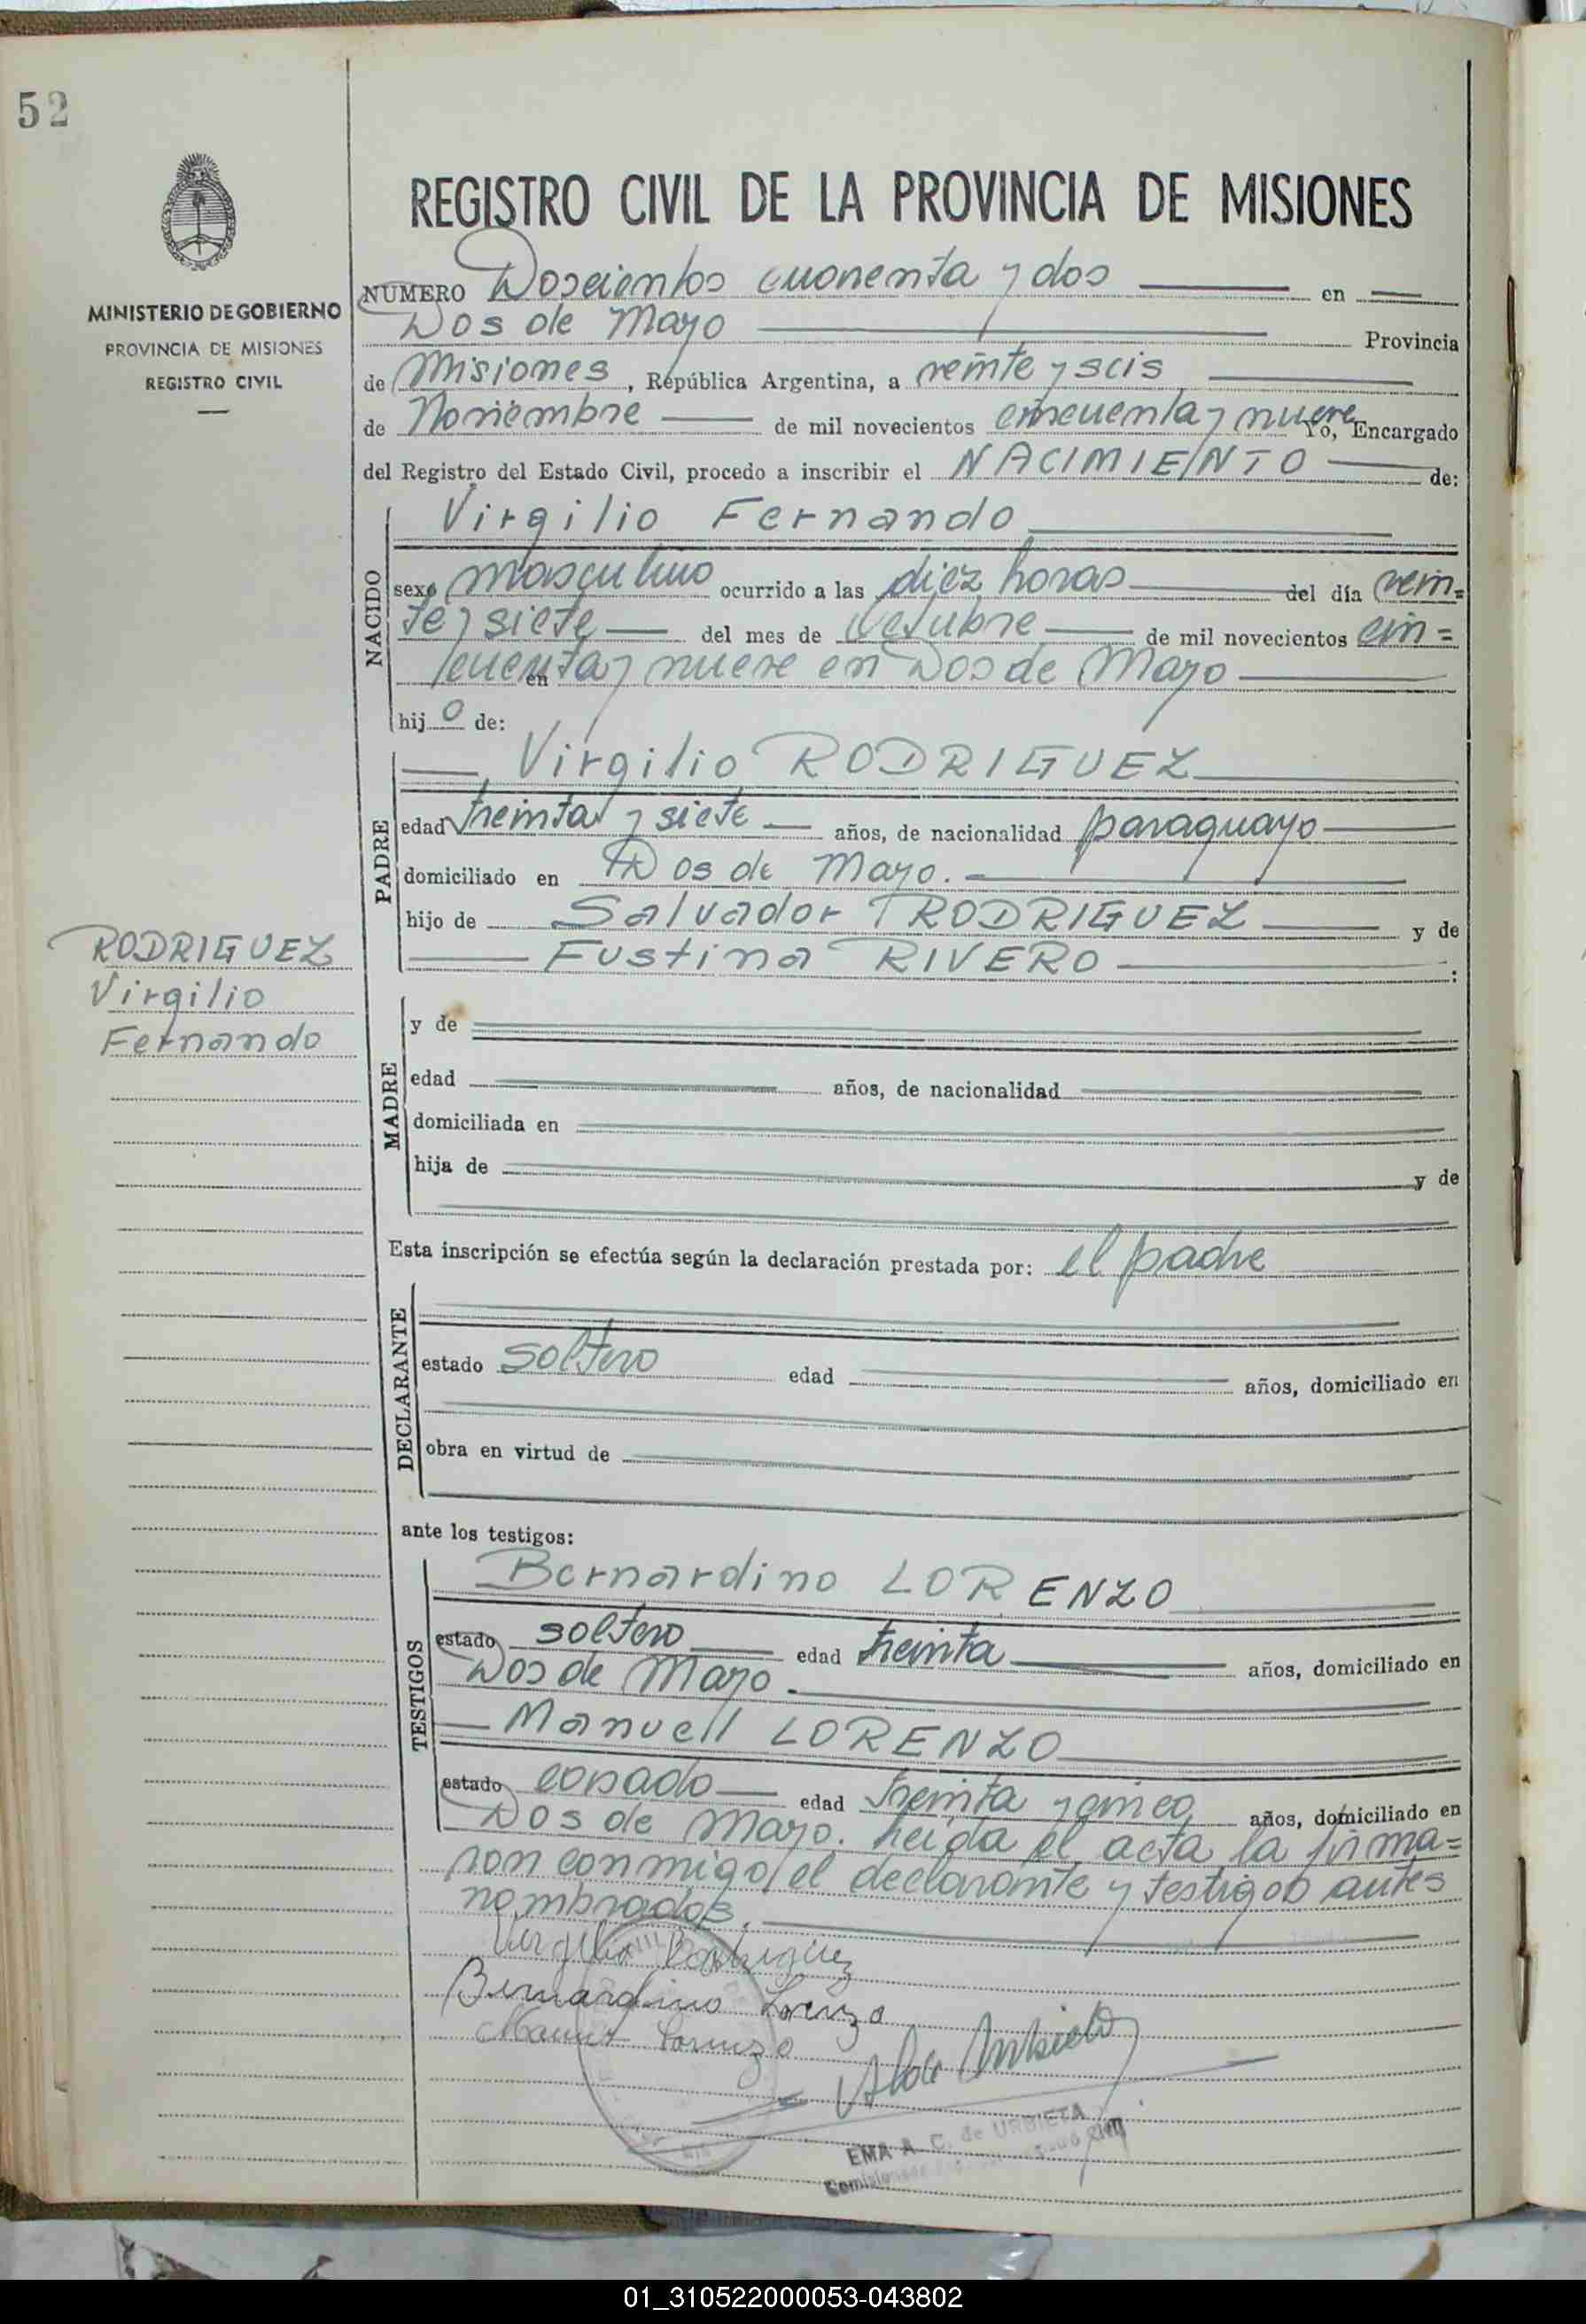 52
REGISTRO CIVIL DE LA PROVINCIA DE MISIONES
MINISTERIO DE GOBIERNO
PROVINCIA DE MISIONES
REGISTRO CIVIL
NUMERO Doscientos cuarenta y dos en
Dos de Mayo Provincia
de Misiones, República Argentina, a veinte y seis
de Noviembre de mil novecientos cincuenta y nueve Yo, Encargado
del Registro del Estado Civil, procedo a inscribir el NACIMIENTO de:
NACIDO
Virgilio Fernando
sexo masculino ocurrido a las diez horas del día vein=
te y siete del mes de Octubre de mil novecientos cin=
cuenta y nueve en Dos de Mayo
en
hijo de:
PADRE
Virgilio RODRIGUEZ
edad treinta y siete años, de nacionalidad paraguayo
domiciliado en Dos de Mayo.
hijo de Salvador RODRIGUEZ y de
Fustina RIVERO :
RODRIGUEZ
Virgilio
Fernando
MADRE
y de
edad años, de nacionalidad
domiciliada en
hija de y de
Esta inscripción se efectúa según la declaración prestada por: el padre
DECLARANTE
estado soltero edad años, domiciliado en
obra en virtud de
ante los testigos:
TESTIGOS
Bernardino LORENZO
estado soltero edad treinta años, domiciliado en
Dos de Mayo.
Manuel LORENZO
estado casado edad treinta y cinco años, domiciliado en
Dos de Mayo. Leida el acta la firma=
ron conmigo el declarante y testigos antes
nombrados.
Virgilio Rodriguez
Bernardino Lorenzo
Manuel Lorenzo
EMA A. C. de URBIETA
01_310522000053-043802